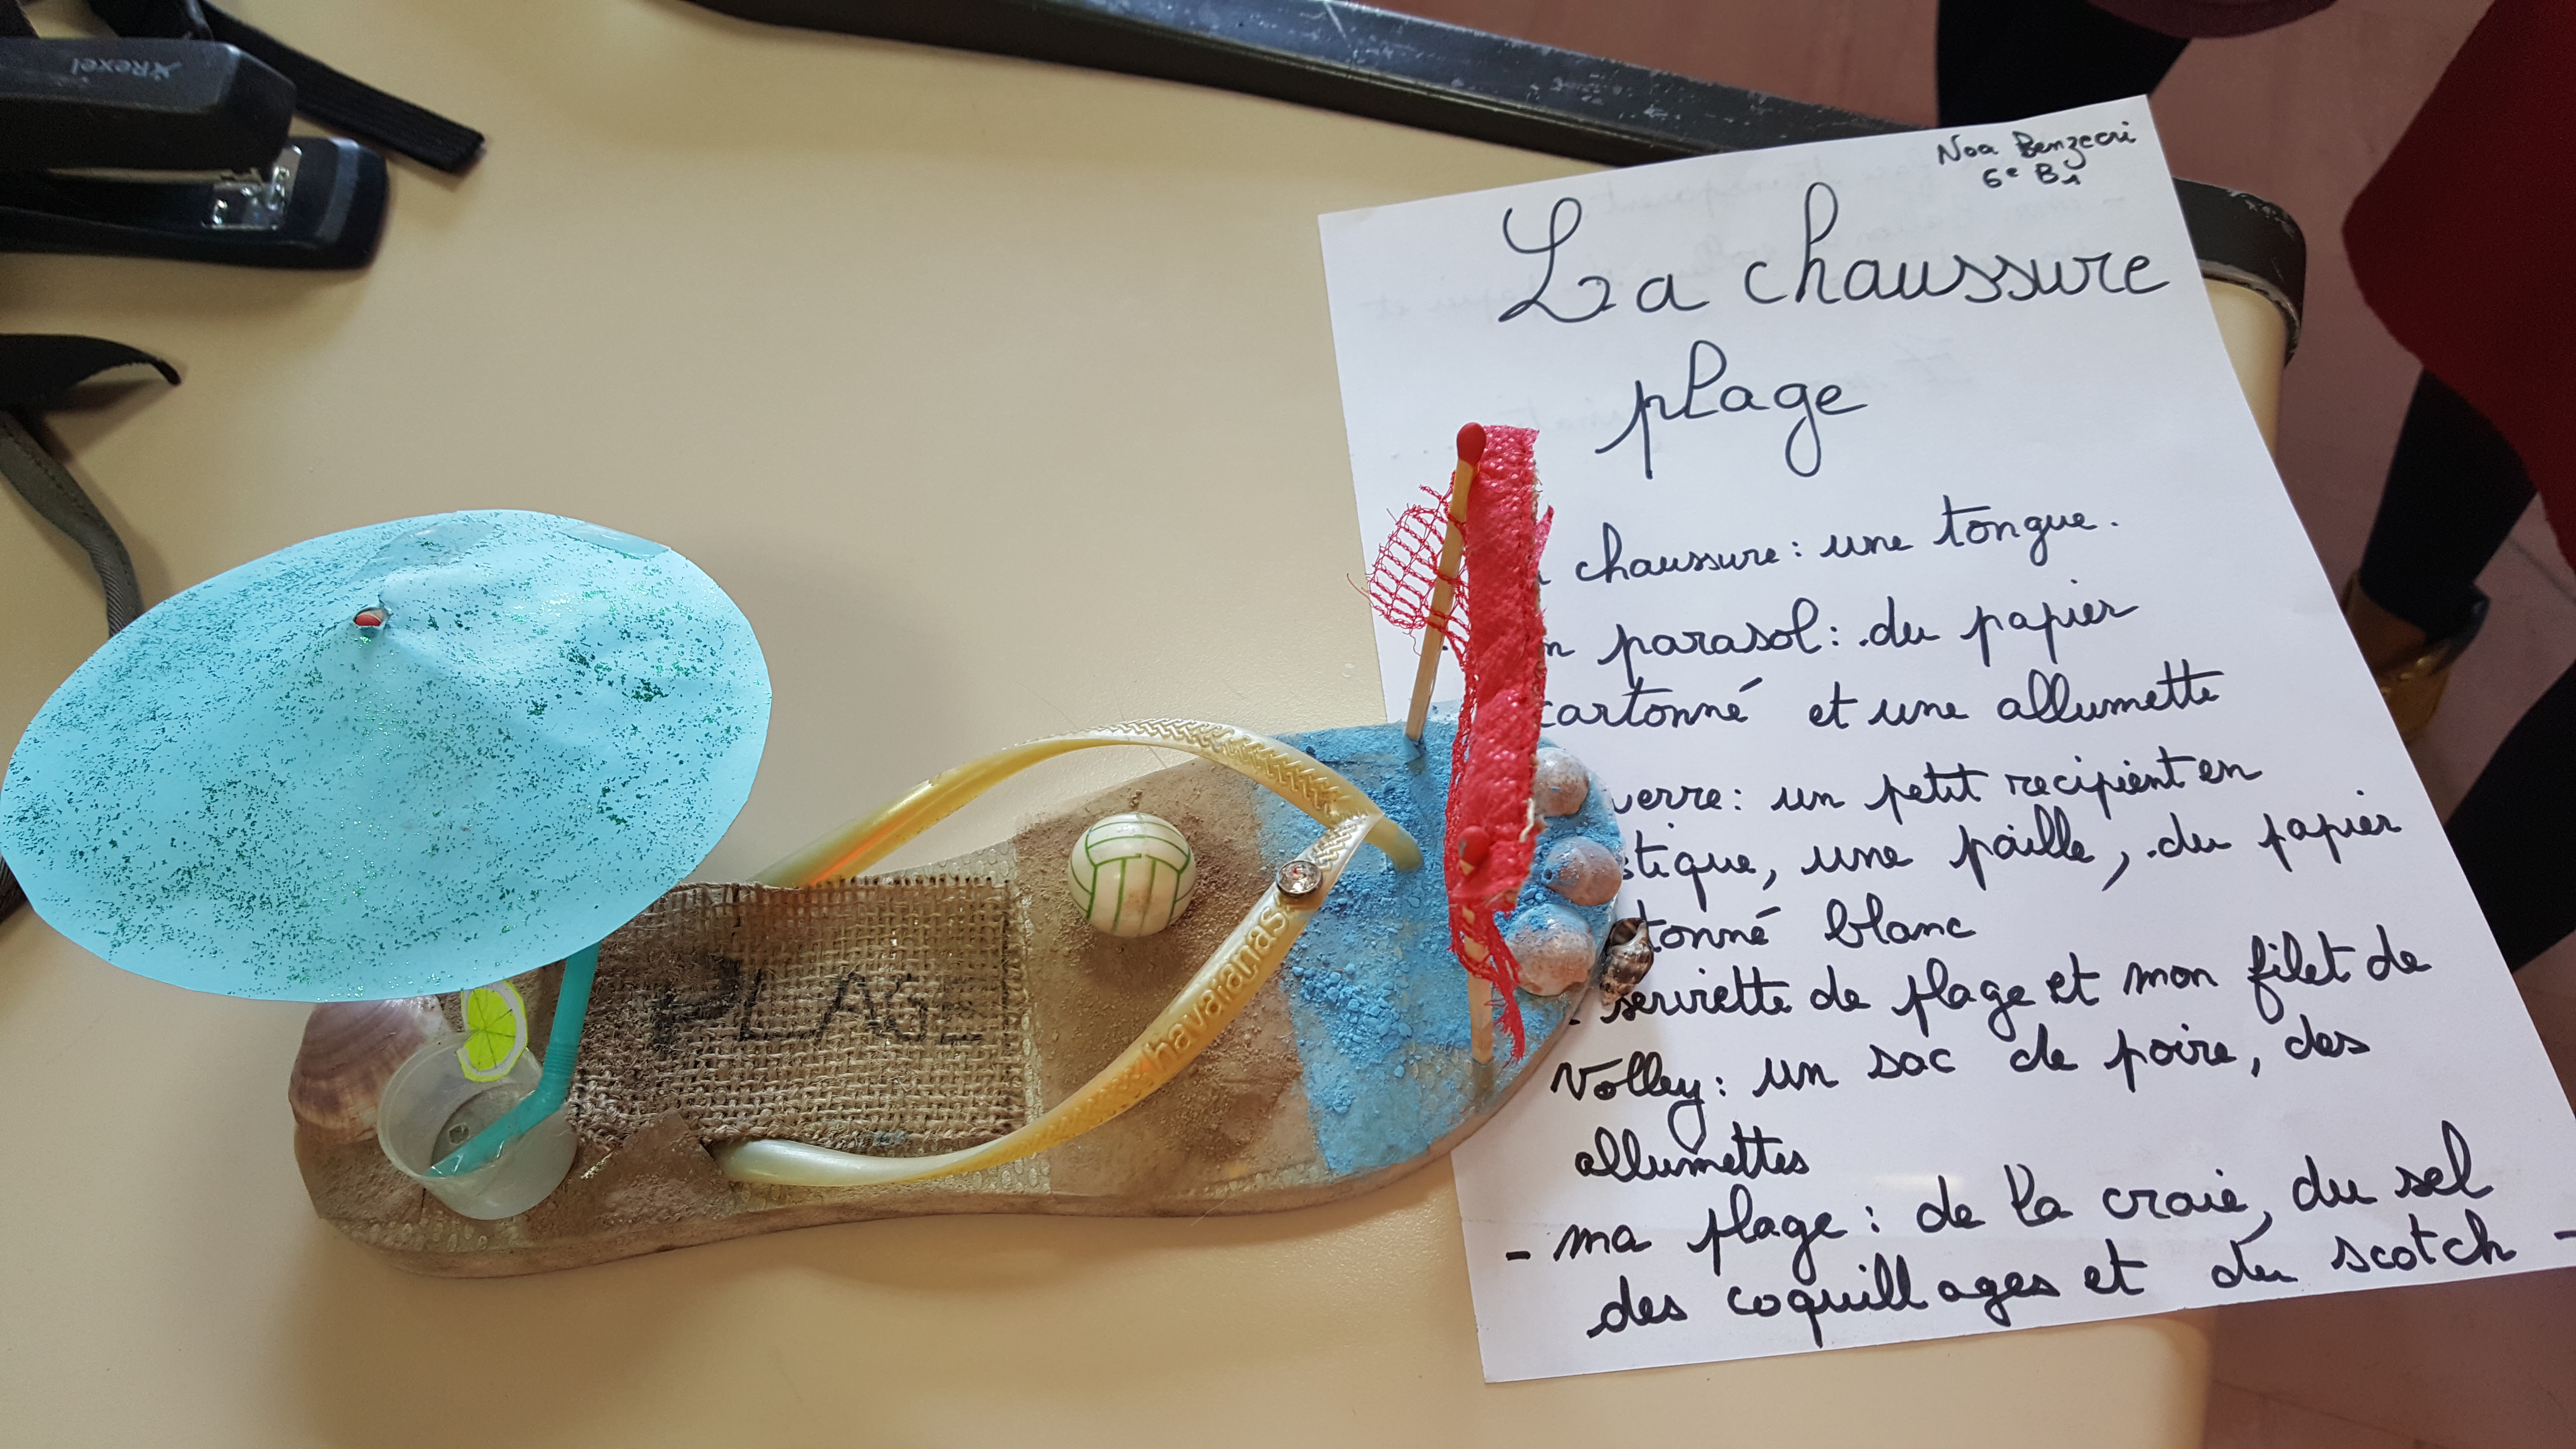 Rexel
Noa Benzecri
6e B1
La chaussure
plage
chaussure: une tongue.
parasol: du papier
cartonné et une allumette
verre: un petit recipient en
stique, une paille, du papier
tonné blanc
- serviette de plage et mon filet de
Volley: un sac de poire, des
allumettes
- ma plage: de la craie, du sel
des coquillages et du scotch -
PLAGE
havaianas